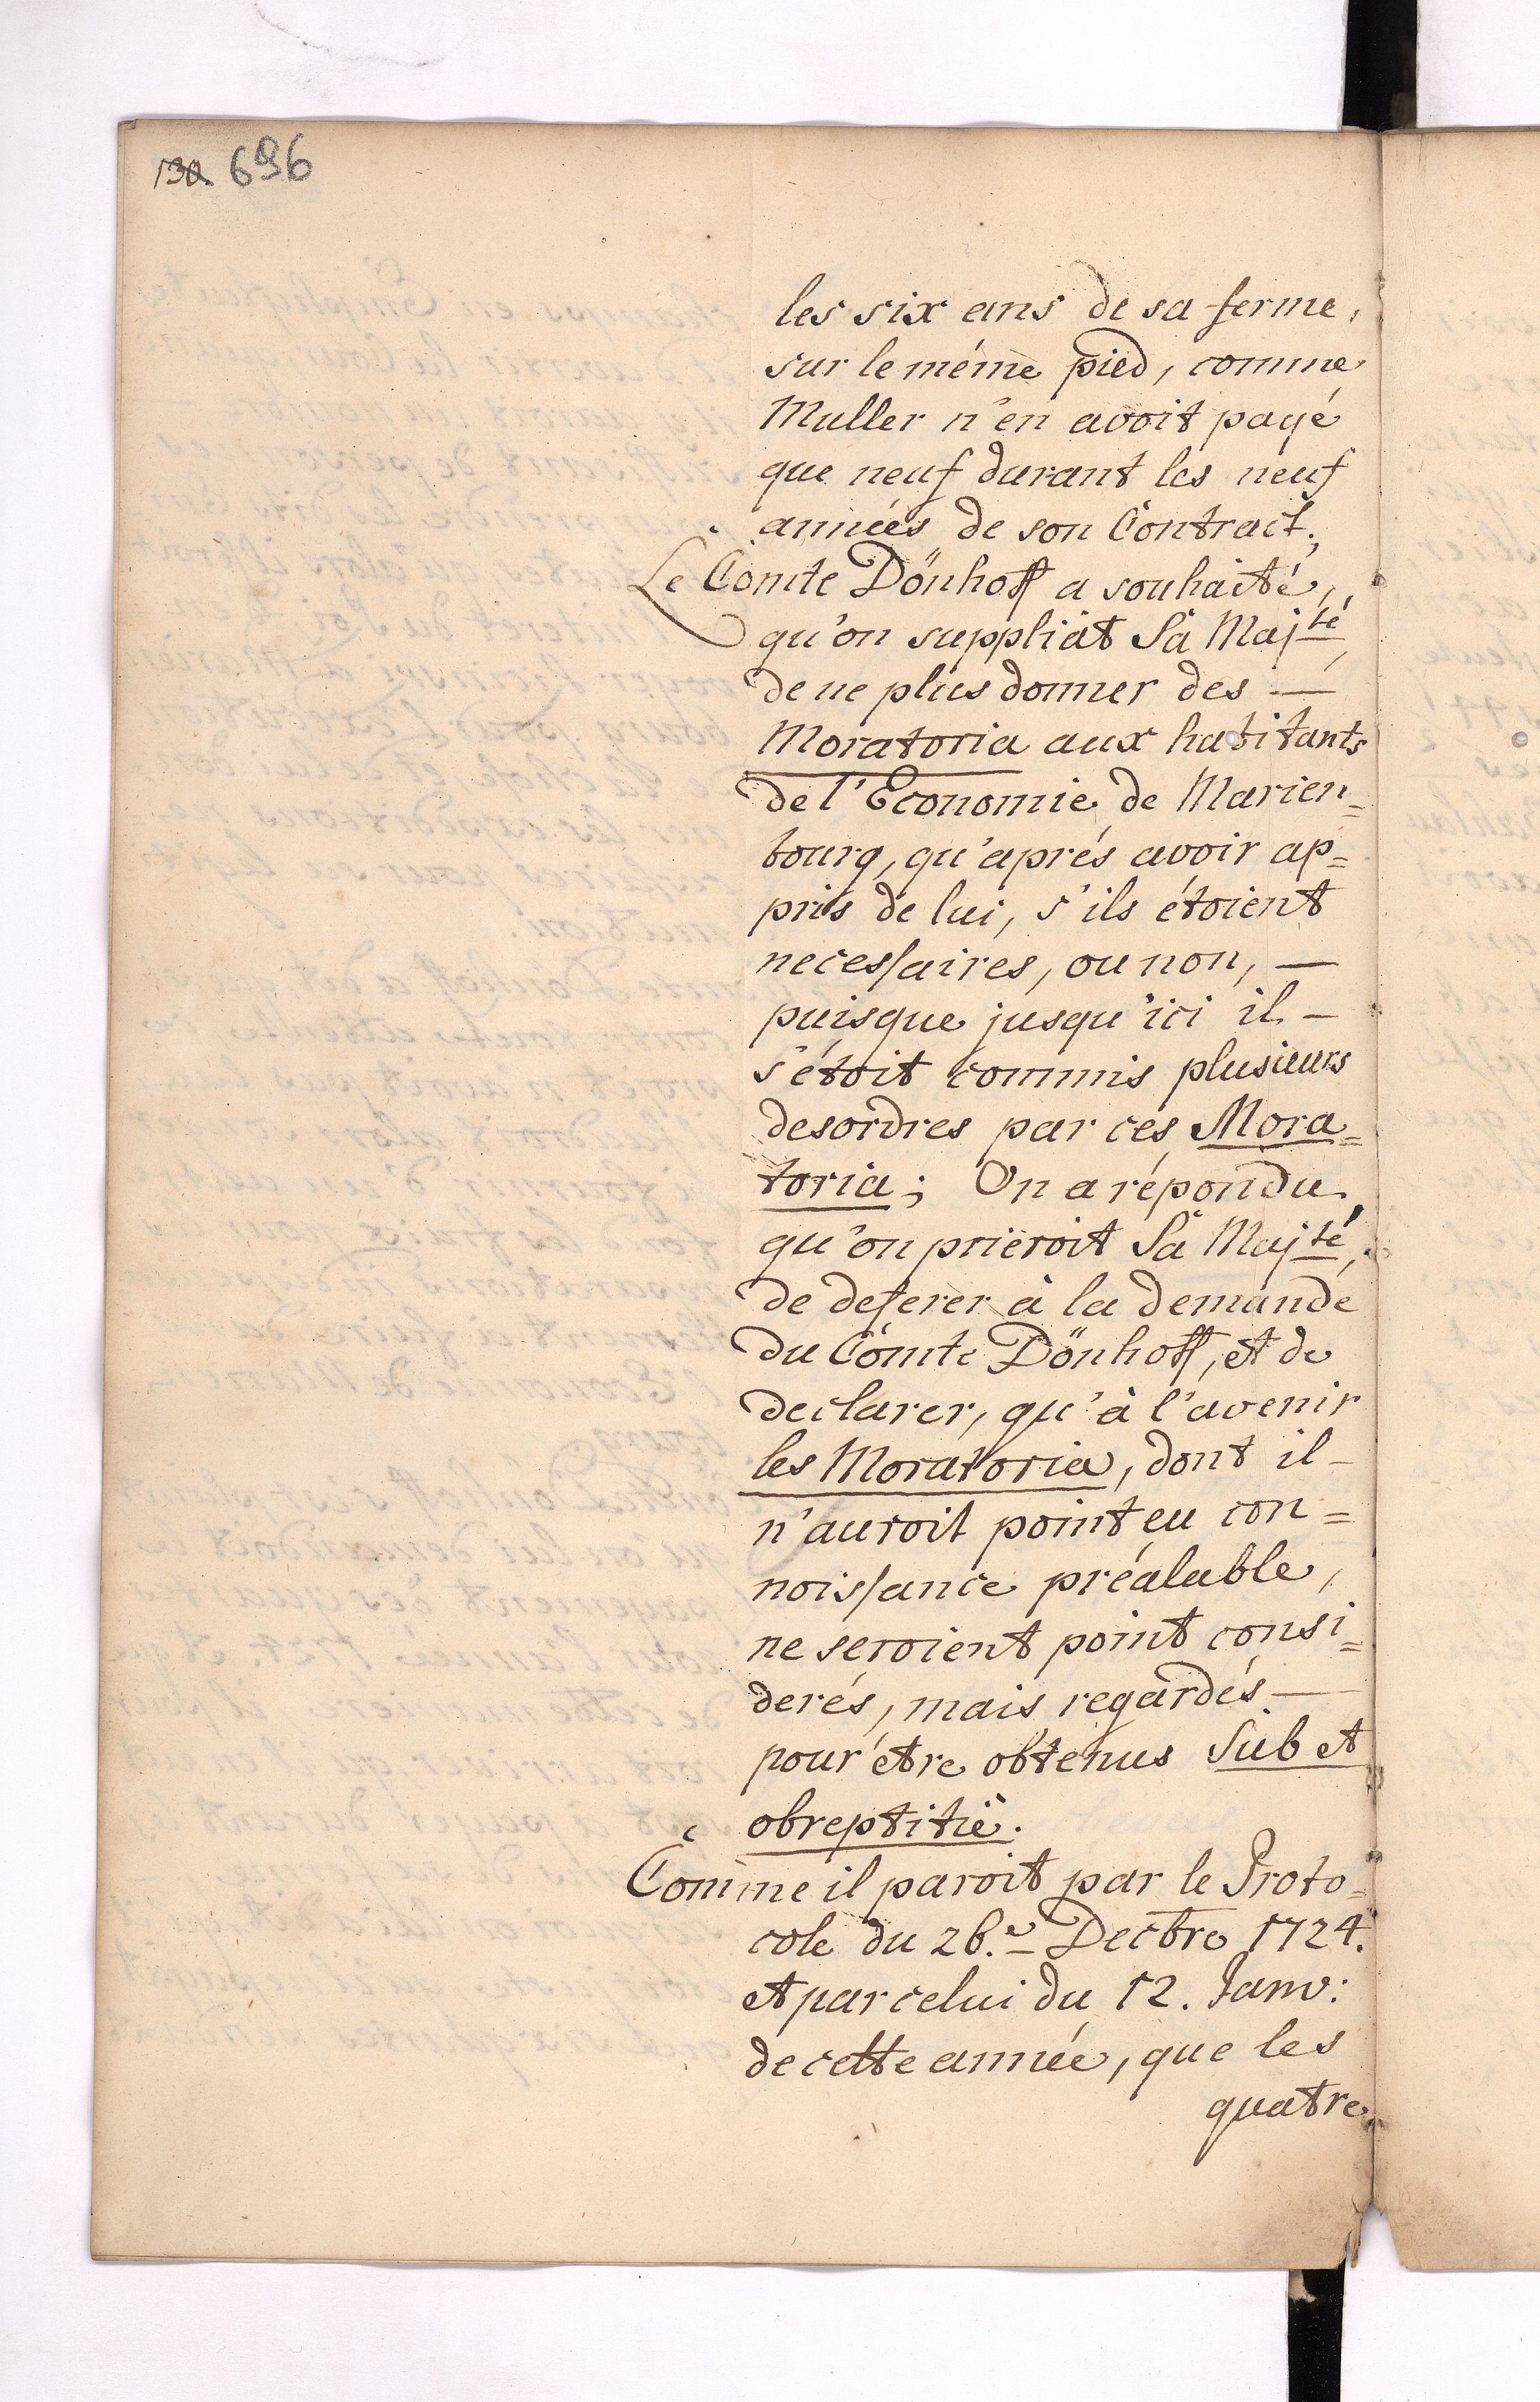 130 696
les six ans de sa ferme,
sur le méme pied, comme
Muller n'en avoit payé
que neuf durant les neuf
années de son Contract.
Le Comte Dönhoff a souhaité,
qu'on suppliat Sa Maj.té,
de ne plus donner des —
Moratoria aux habitants
de l'Economie de Marien=
bourg, qu'aprés avoir ap=
pris de lui, s'ils étoient
necessaires, ou non, —
puisque jusqu'ici il —
s'étoit commis plusieurs
desordres par ces Mora=
toria; On a répondu,
qu'on prieroit Sa Maj.té,
de deferer à la demande
du Comte Dönhoff, et de
declarer, qu'à l'avenir
les Moratoria, dont il —
n'auroit point eu con=
noissance préalable,
ne seroient point consi=
derés, mais regardés —
pour étre obtenus Sub et
obreptitiè.
Comme il paroit par le Proto=
cole du 26.e Decbre 1724.
et par celui du 12. Janv:
de cette année, que les
quatre